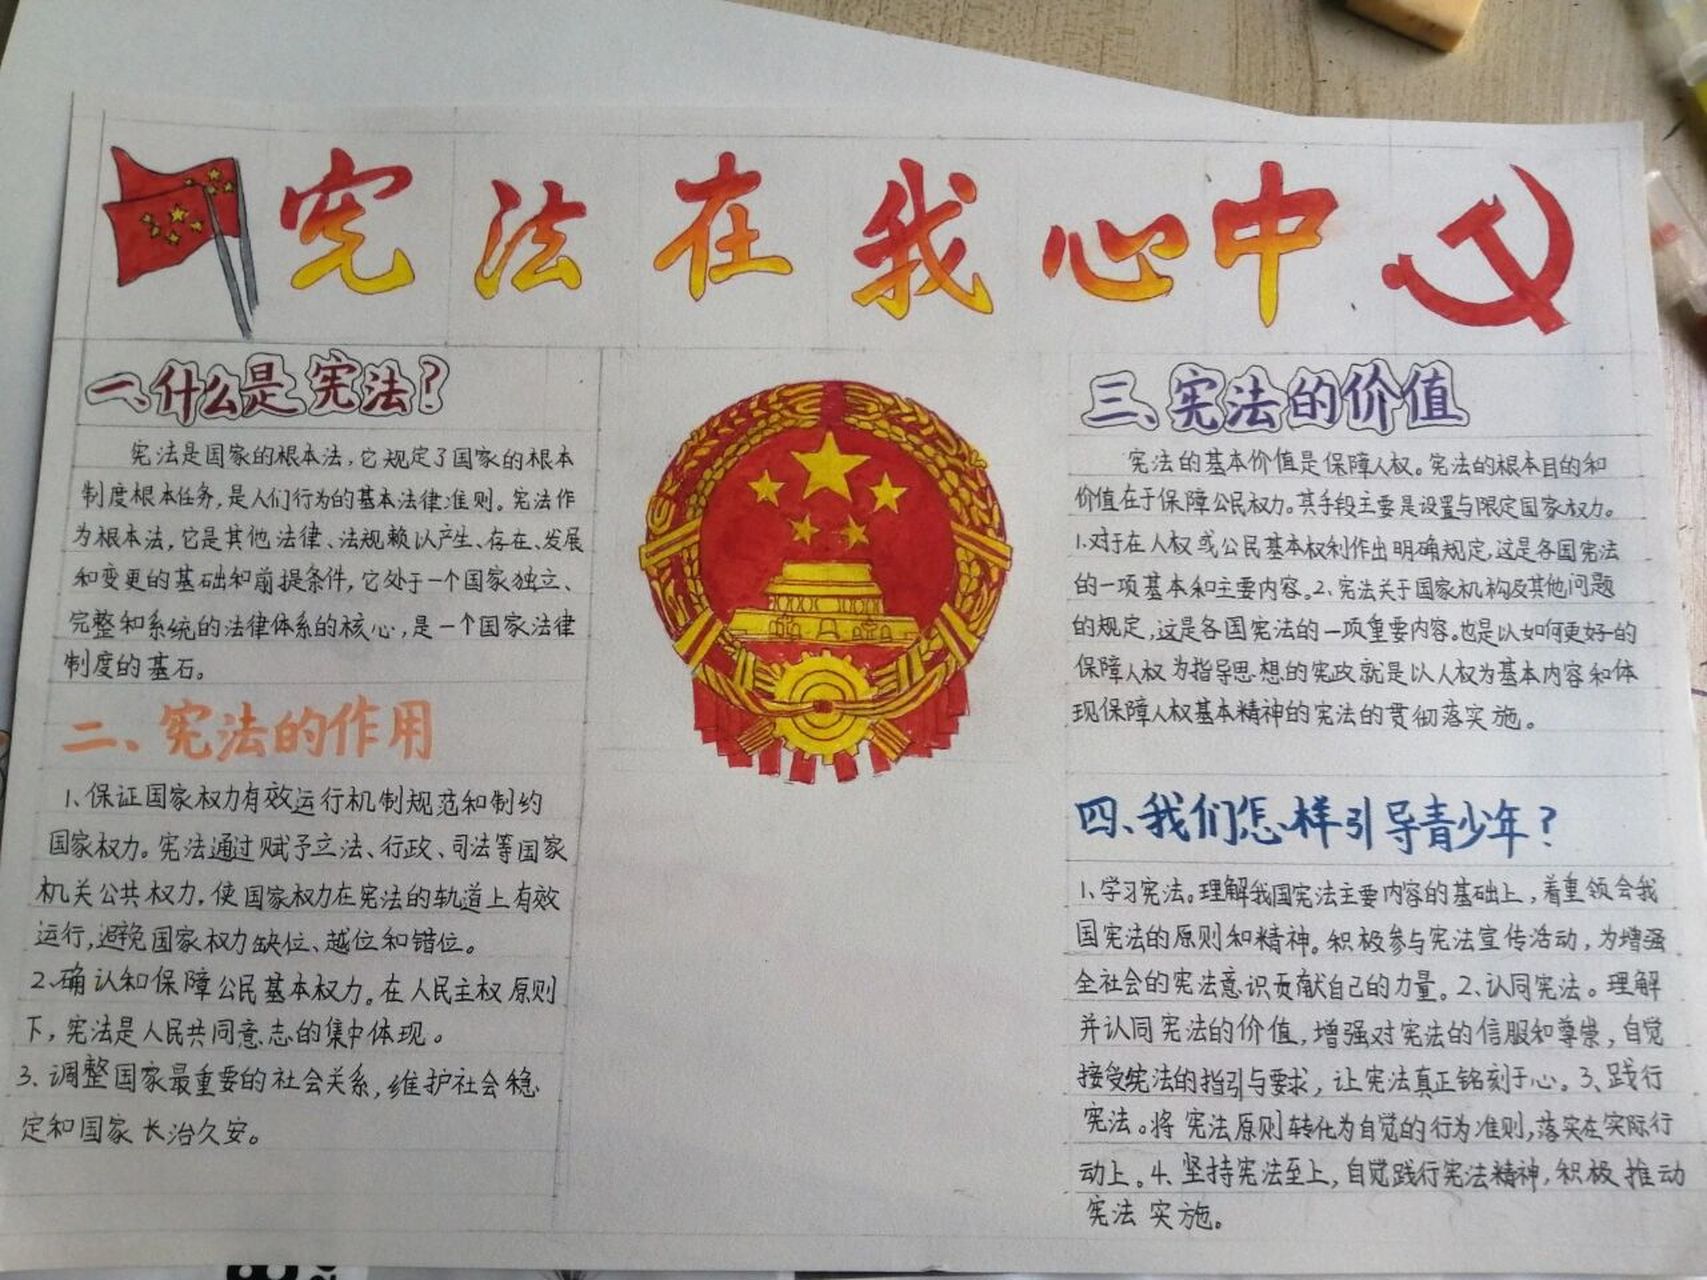 宪法在我心中
一、什么是宪法？
宪法是国家的根本法，它规定了国家的根本
制度根本任务，是人们行为的基本法律准则。宪法作
为根本法，它是其他法律、法规赖以产生、存在、发展
和变更的基础和前提条件，它处于一个国家独立、
完整和系统的法律体系的核心，是一个国家法律
制度的基石。
二、宪法的作用
1、保证国家权力有效运行机制规范和制约
国家权力。宪法通过赋予立法、行政、司法等国家
机关公共权力，使国家权力在宪法的轨道上有效
运行，避免国家权力缺位、越位和错位。
2、确认和保障公民基本权力。在人民主权原则
下，宪法是人民共同意志的集中体现。
3、调整国家最重要的社会关系，维护社会稳
定和国家长治久安。
三、宪法的价值
宪法的基本价值是保障人权。宪法的根本目的和
价值在于保障公民权力。其手段主要是设置与限定国家权力。
1.对于在人权或公民基本权利作出明确规定，这是各国宪法
的一项基本和主要内容。2、宪法关于国家机构及其他问题
的规定，这是各国宪法的一项重要内容。也是以如何更好的
保障人权为指导思想的宪政就是以人权为基本内容和体
现保障人权基本精神的宪法的贯彻落实施。
四、我们怎样引导青少年？
1、学习宪法。理解我国宪法主要内容的基础上，着重领会我
国宪法的原则和精神。积极参与宪法宣传活动，为增强
全社会的宪法意识贡献自己的力量。2、认同宪法。理解
并认同宪法的价值，增强对宪法的信服和尊崇，自觉
接受宪法的指引与要求，让宪法真正铭刻于心。3、践行
宪法。将宪法原则转化为自觉的行为准则，落实在实际行
动上。4、坚持宪法至上，自觉践行宪法精神，积极推动
宪法实施。